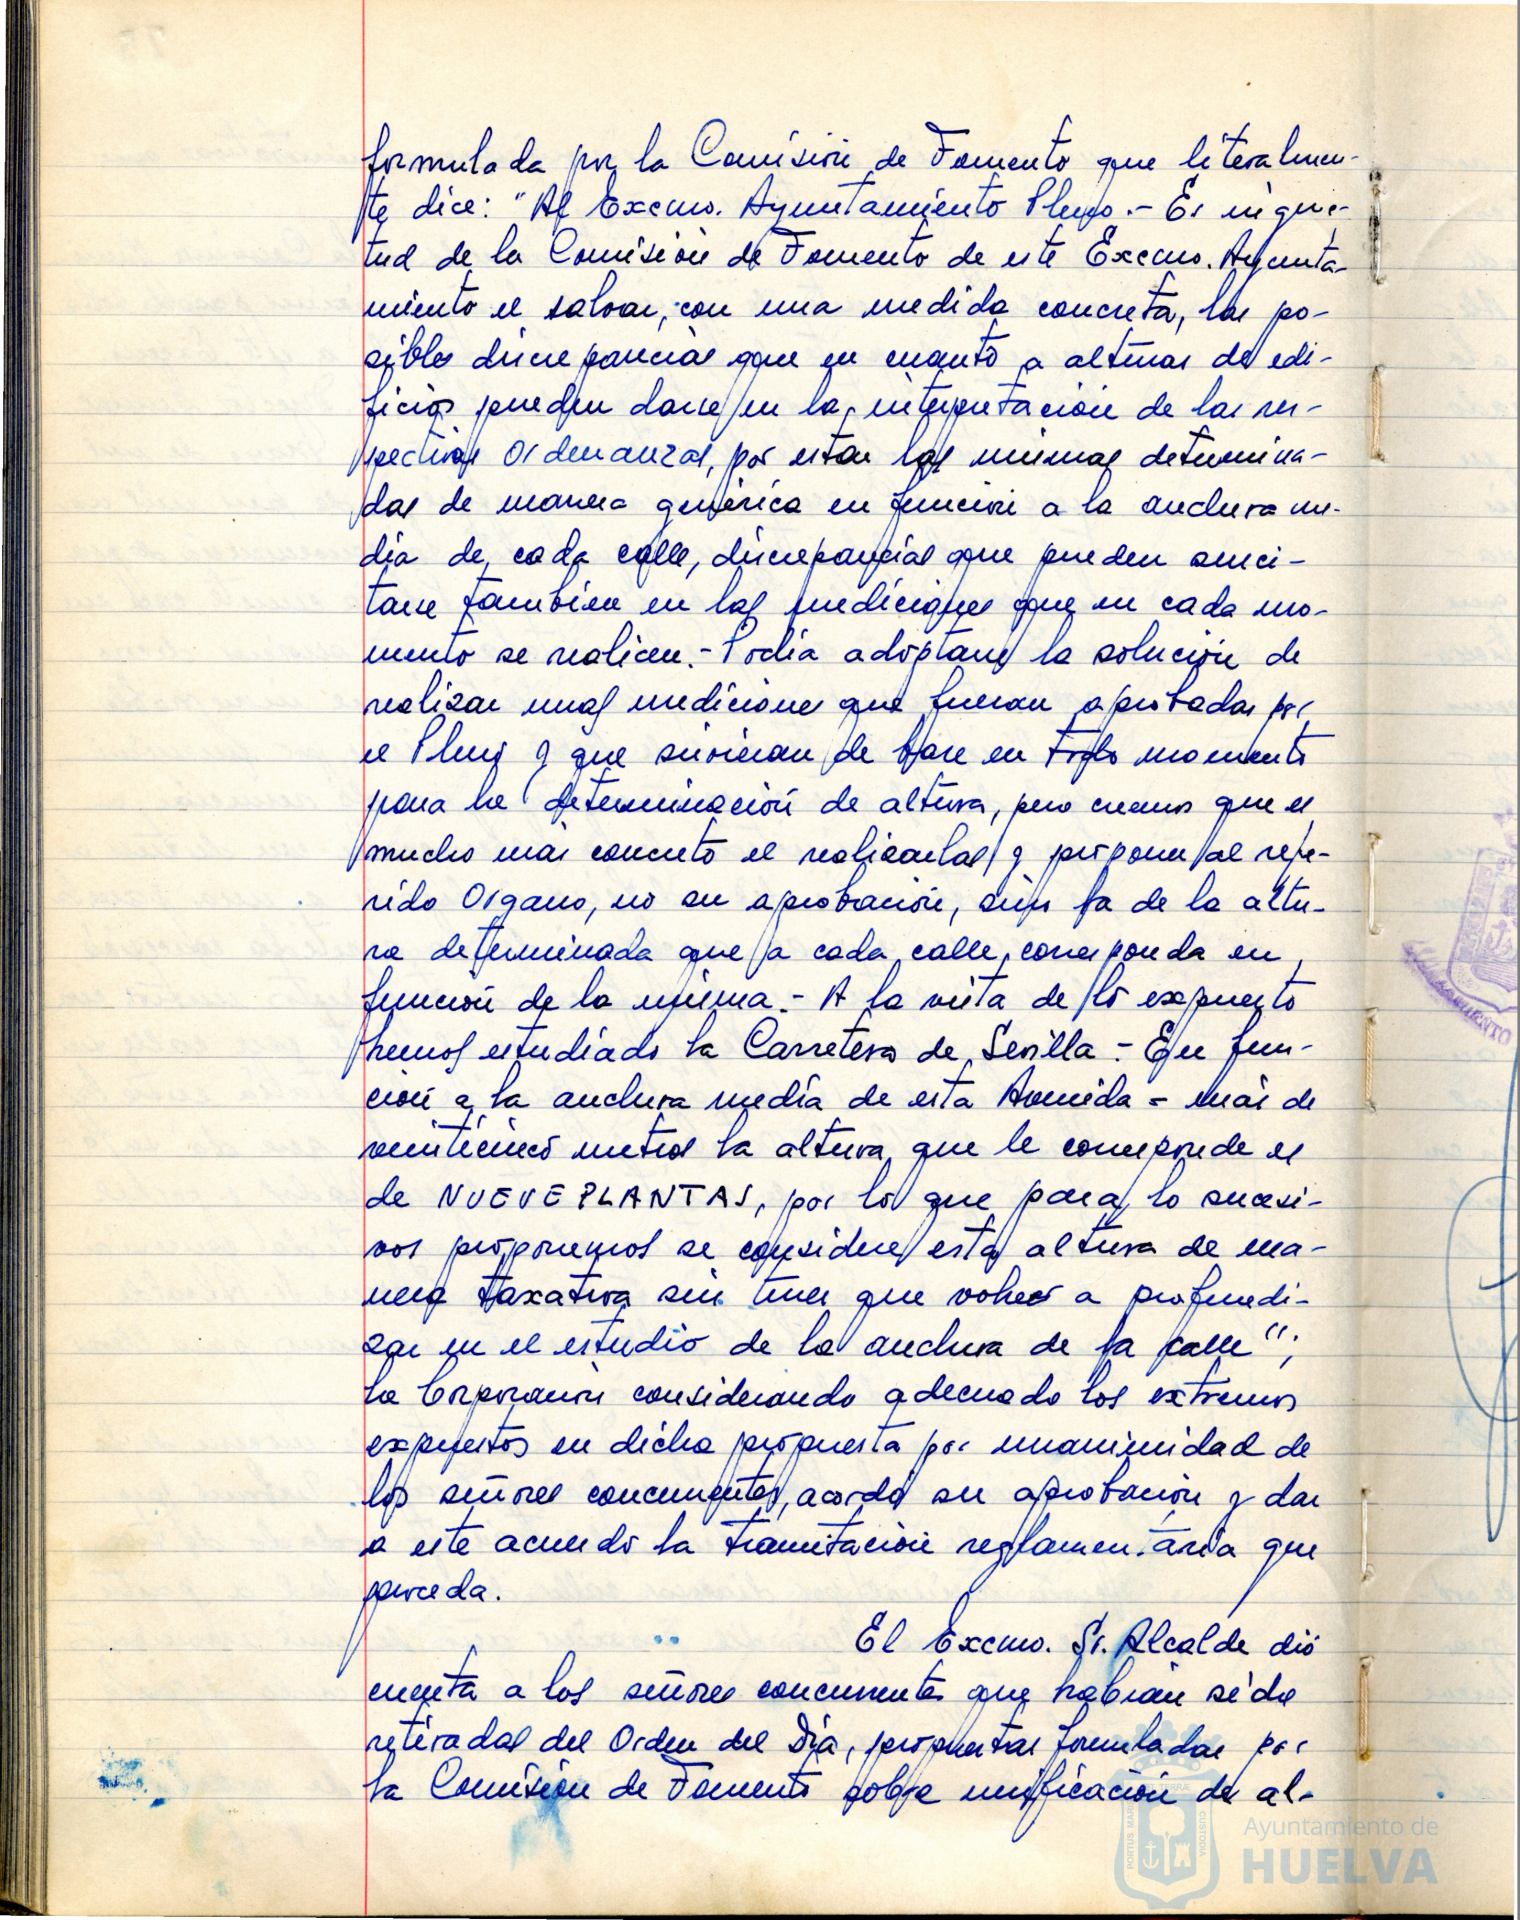 formulada por la Comisión de Fomento que literalmen-
te dice: "Al Excmo. Ayuntamiento Pleno.- Es inquie-
tud de la Comisión de Fomento de este Excmo. Ayunta-
miento el salvar, con una medida concreta, las po-
sibles discrepancias que en cuanto a alturas de edi-
ficios pueden darse en la interpretación de las res-
pectivas Ordenanzas, por estar las mismas determina-
das de manera genérica en función a la anchura me-
dia de cada calle, discrepancias que pueden susci-
tarse también en las mediciones que en cada mo-
mento se realicen.- Podia adoptarse la solución de
realizar unas mediciones que fueran aprobadas por
el Pleno y que sirvieran de base en todo momento
para la determinación de altura, pero creemos que es
mucho más concreto el realizarlas y proponer al refe-
rido Organo, no su aprobación, sino la de la altu-
ra determinada que a cada calle corresponda en
función de la misma.- A la vista de lo expuesto
hemos estudiado la Carretera de Sevilla - En fun-
ción a la anchura media de esta Avenida - más de
veinticinco metros la altura que le corresponde es
de NUEVE PLANTAS, por lo que para lo sucesi-
vos proponemos se considere esta altura de ma-
nera taxativa sin tener que volver a profundi-
zar en el estudio de la anchura de la calle";
la Corporación considerando adecuado los extremos
expuestos en dicha propuesta por unanimidad de
los señores concurrentes, acordó su aprobación y dar
a este acuerdo la tramitación reglamentaria que
proceda.
El Excmo. Sr. Alcalde dió
cuenta a los señores concurrentes que habían sido
retiradas del Orden del Día, propuestas formuladas por
la Comisión de Fomento sobre unificación de al-
AYUNTAMIENTO
PORTUS MARIS ET TERRAE CUSTODIA
Ayuntamiento de
HUELVA